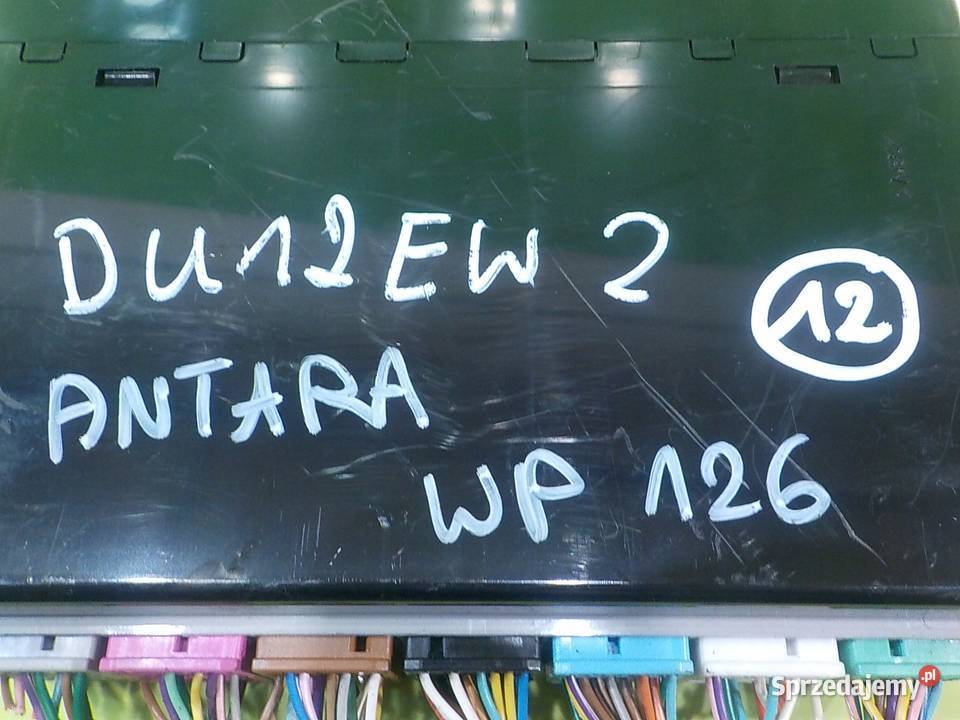 DU12EW 2
12
ANTARA
WP 126
Sprzedajemy.pl